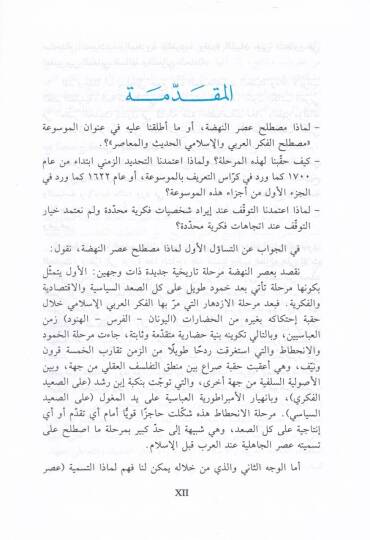 المقدّمة
- لماذا مصطلح عصر النهضة، أو ما أطلقنا عليه في عنوان الموسوعة
«مصطلح الفكر العربي والإسلامي الحديث والمعاصر»؟.
- كيف حقّبنا لهذه المرحلة؟ ولماذا اعتمدنا التحديد الزمني ابتداء من عام
١٧٠٠ كما ورد في كرّاس التعريف بالموسوعة، أو عام ١٦٢٢ كما ورد في
الجزء الأول من أجزاء هذه الموسوعة؟
- لماذا اعتمدنا التوقّف عند إيراد شخصيات فكرية محدّدة ولم نعتمد خيار
التوقّف عند اتجاهات فكرية محدّدة؟
في الجواب عن التساؤل الأول لماذا مصطلح عصر النهضة، نقول:
نقصد بعصر النهضة مرحلة تاريخية جديدة ذات وجهين: الأول يتمثّل
بكونها مرحلة تأتي بعد خمود طويل على كل الصعد السياسية والاقتصادية
والفكرية. فبعد مرحلة الازدهار التي مرّ بها الفكر العربي الإسلامي خلال
حقبة إحتكاكه بغيره من الحضارات (اليونان - الفرس - الهنود) زمن
العباسيين، وبالتالي تكوينه بنية حضارية متقدّمة وثابتة، جاءت مرحلة الخمود
والانحطاط والتي استغرقت ردحًا طويلًا من الزمن تقارب الخمسة قرون
ونيّف، وهي أعقبت حقبة صراع بين منطق التفلسف العقلي من جهة، وبين
الأصولية السلفية من جهة أخرى، والتي توجّت بنكبة إبن رشد (على الصعيد
الفكري)، وبانهيار الأمبراطورية العباسية على يد المغول (على الصعيد
السياسي). مرحلة الانحطاط هذه شكّلت حاجزًا قويًّا أمام أي تقدّم أو أي
إنتاجية على كل الصعد، وهي شبيهة إلى حدّ كبير بمرحلة ما اصطلح على
تسميته عصر الجاهلية عند العرب قبل الإسلام.
أما الوجه الثاني والذي من خلاله يمكن لنا فهم لماذا التسمية (عصر
XII